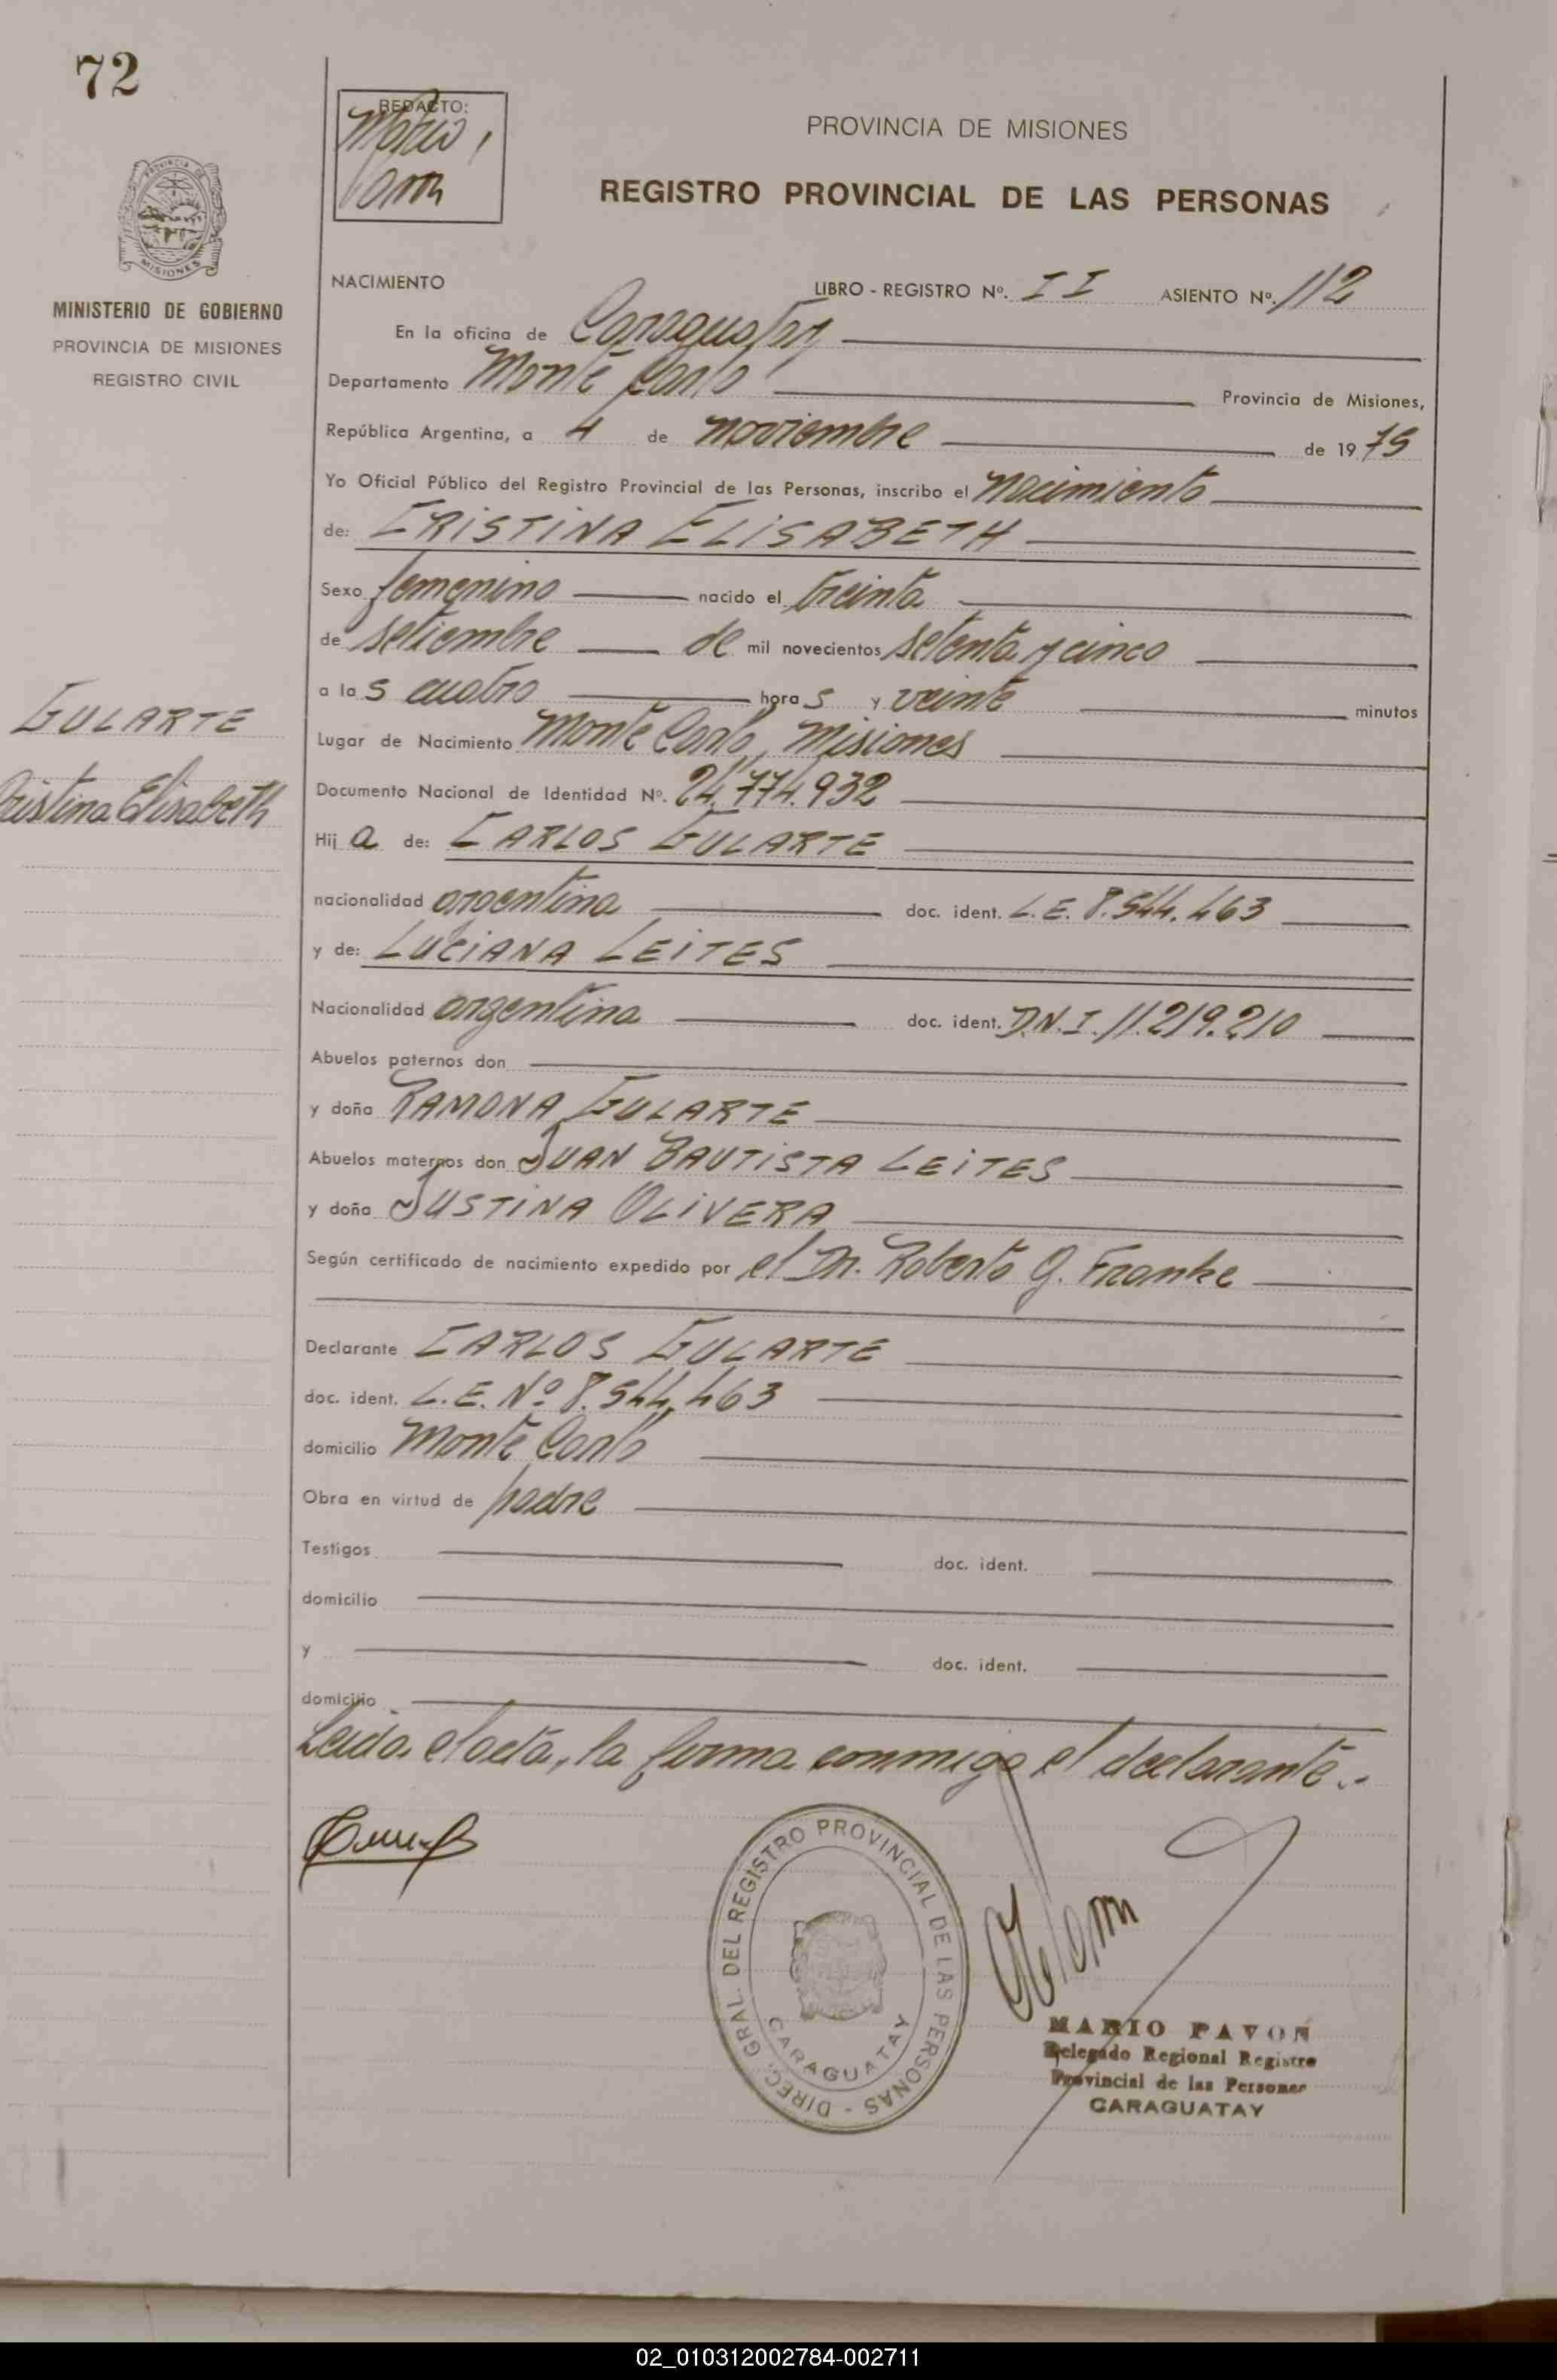 72
REDACTO:
PROVINCIA DE MISIONES
REGISTRO PROVINCIAL DE LAS PERSONAS
PROVINCIA DE
MISIONES
MINISTERIO DE GOBIERNO
PROVINCIA DE MISIONES
REGISTRO CIVIL
NACIMIENTO LIBRO - REGISTRO Nº. II ASIENTO Nº. 112
En la oficina de Caraguatay
Departamento Monte Carlo Provincia de Misiones,
República Argentina, a 4 de noviembre de 1975
Yo Oficial Público del Registro Provincial de las Personas, inscribo el nacimiento
de: CRISTINA ELISABETH
Sexo femenino nacido el treinta
de setiembre de mil novecientos setenta y cinco
a las cuatro horas y veinte minutos
GULARTE
Lugar de Nacimiento Monte Carlo, Misiones
Cristina Elisabeth
Documento Nacional de Identidad Nº. 24.774.932
Hija de: CARLOS GULARTE
nacionalidad argentina doc. ident. L.E. 8.544.463
y de: LUCIANA LEITES
Nacionalidad argentina doc. ident. D.N.I. 11.219.210
Abuelos paternos don
y doña RAMONA GULARTE
Abuelos maternos don JUAN BAUTISTA LEITES
y doña JUSTINA OLIVERA
Según certificado de nacimiento expedido por el Dr. Roberto G. Franke
Declarante CARLOS GULARTE
doc. ident. L.E. Nº 8.544.463
domicilio Monte Carlo
Obra en virtud de padre
Testigos doc. ident.
domicilio
y doc. ident.
domicilio
Leida el acta, la firma conmigo el declarante.-
DIREC. GRAL. DEL REGISTRO PROVINCIAL DE LAS PERSONAS -
CARAGUATAY
MARIO PAVON
Delegado Regional Registro
Provincial de las Personas
CARAGUATAY
02_010312002784-002711